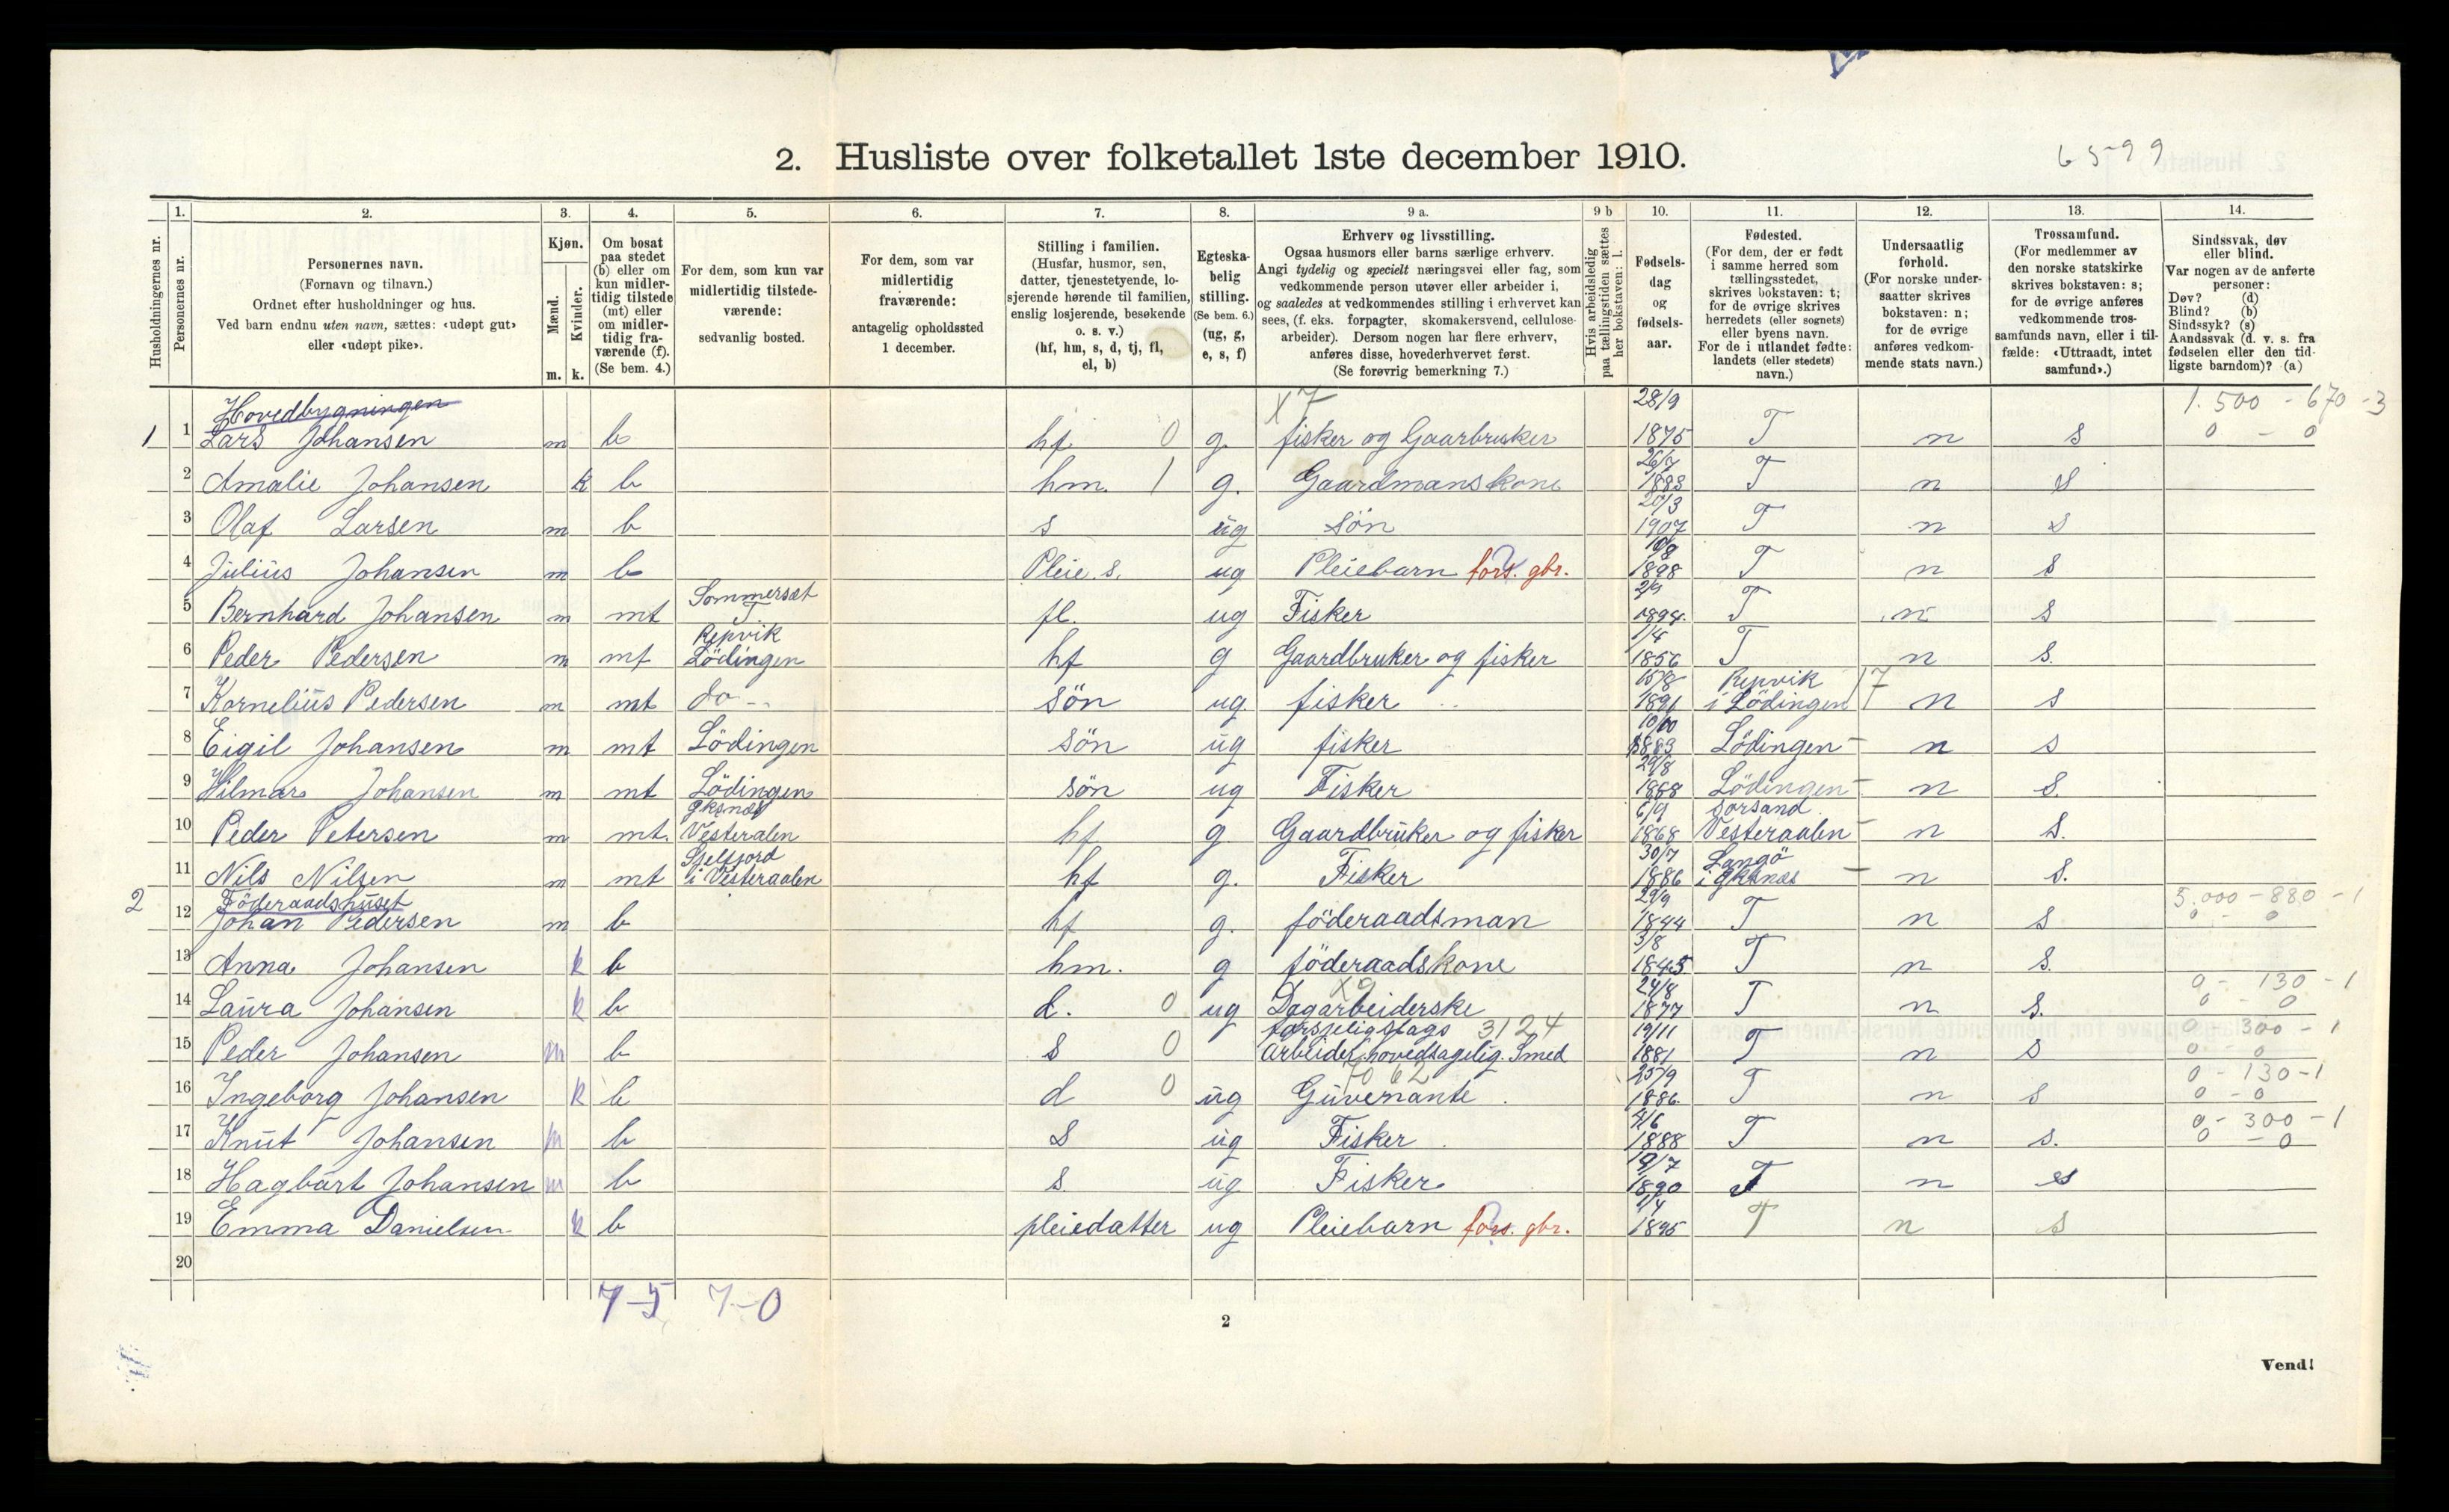 2. Husliste over folketallet 1ste december 1910.
65-99
Husholdningernes nr.
1. Personernes nr.
2. Personernes navn.
(Fornavn og tilnavn.)
Ordnet efter husholdninger og hus.
Ved barn endnu uten navn, sættes: «udøpt gut»
eller «udøpt pike».
3. Kjøn.
Mænd. m.
Kvinder. k.
4. Om bosat
paa stedet
(b) eller om
kun midler-
tidig tilstede
(mt) eller
om midler-
tidig fra-
værende (f).
(Se bem. 4.)
5. For dem, som kun var
midlertidig tilstede-
værende:
sedvanlig bosted.
6. For dem, som var
midlertidig
fraværende:
antagelig opholdssted
1 december.
7. Stilling i familien.
(Husfar, husmor, søn,
datter, tjenestetyende, lo-
sjerende hørende til familien,
enslig losjerende, besøkende
o. s. v.)
(hf, hm, s, d, tj, fl,
el, b)
8. Egteska-
belig
stilling.
(Se bem. 6.)
(ug, g,
e, s, f)
9 a. Erhverv og livsstilling.
Ogsaa husmors eller barns særlige erhverv.
Angi tydelig og specielt næringsvei eller fag, som
vedkommende person utøver eller arbeider i,
og saaledes at vedkommendes stilling i erhvervet kan
sees, (f. eks. forpagter, skomakersvend, cellulose-
arbeider). Dersom nogen har flere erhverv,
anføres disse, hovederhvervet først.
(Se forøvrig bemerkning 7.)
9 b Hvis arbeidsledig
paa tællingstiden sættes
her bokstaven: l.
10. Fødsels-
dag
og
fødsels-
aar.
11. Fødested.
(For dem, der er født
i samme herred som
tællingsstedet,
skrives bokstaven: t;
for de øvrige skrives
herredets (eller sognets)
eller byens navn.
For de i utlandet fødte:
landets (eller stedets)
navn.)
12. Undersaatlig
forhold.
(For norske under-
saatter skrives
bokstaven: n;
for de øvrige
anføres vedkom-
mende stats navn.)
13. Trossamfund.
(For medlemmer av
den norske statskirke
skrives bokstaven: s;
for de øvrige anføres
vedkommende tros-
samfunds navn, eller i til-
fælde: «Uttraadt, intet
samfund».)
14. Sindssvak, døv
eller blind.
Var nogen av de anførte
personer:
Døv? (d)
Blind? (b)
Sindssyk? (s)
Aandssvak (d. v. s. fra
fødselen eller den tid-
ligste barndom)? (a)
Hovedbygningen X7 1.500 - 670 - 3
1 1 Lars Johansen m b hf 0 g. fisker og Gaarbruker 28/9 1875 T n s 0 - 0
2 Amalie Johansen k b hm. 1 g. Gaardmanskone 1883 T n s
3 Olaf Larsen m b s ug søn 20/3 1907 T n s
4 Julius Johansen m b Pleie s. ug Pleiebarn fors. gbr. 10/8 1898 T n s
5 Bernhard Johansen m mt Sommersæt T fl. ug Fisker 1894. T n s
6 Peder Pedersen m mt Repvik Lödingen hf g Gaardbruker og fisker 1/4 1856 T n s.
7 Kornelius Pedersen m mt do sön ug. fisker 15/8 1891 Repvik i Lödingen 17 n s
8 Eigil Johansen m mt Lödingen sön ug fisker 10/10 1883 Lödingen - n s
9 Hilmar Johansen m mt Lödingen sön ug Fisker 29/8 1888 Lödingen - n s.
10 Peder Petersen m mt. Øksnæs Vesteralen hf g Gaardbruker og fisker 6/9 1868 Vesteraalen - n s.
11 Nils Nilsen m mt i Vesteraalen hf g. Fisker 30/7 1886 Langö i Øksnæs - n s.
Föderaadshuset 5.000 - 880 - 1
2 12 Johan Pedersen m b hf g. föderaadsman 29/9 1844 T n s 0 - 0
13 Anna Johansen k b hm. g föderaadskone 3/8 1845 T n s.
14 Laura Johansen k b d. 0 ug X9 Dagarbeiderske 24/8 1877 T n s. 0 - 130 - 1 0 - 0
15 Peder Johansen m b s 0 forskjeligslags 3124 arbeider, hovedsagelig. Smed 19/11 1881 T n s 0 - 300 - 1 0 - 0
16 Ingeborg Johansen k b d 0 ug Guvernante 25/9 1886. T n s 0 - 130 - 1 0 - 0
17 Knut Johansen m b s ug Fisker 4/6 1888 T n s. 0 - 300 - 1 0 - 0
18 Hagbart Johansen m b s. ug Fisker 19/7 1890 T n s
19 Emma Danielsen k b pleiedatter ug Pleiebarn fors. gbr. 1895 T n s
20
7-5 7-0
2
Vend!